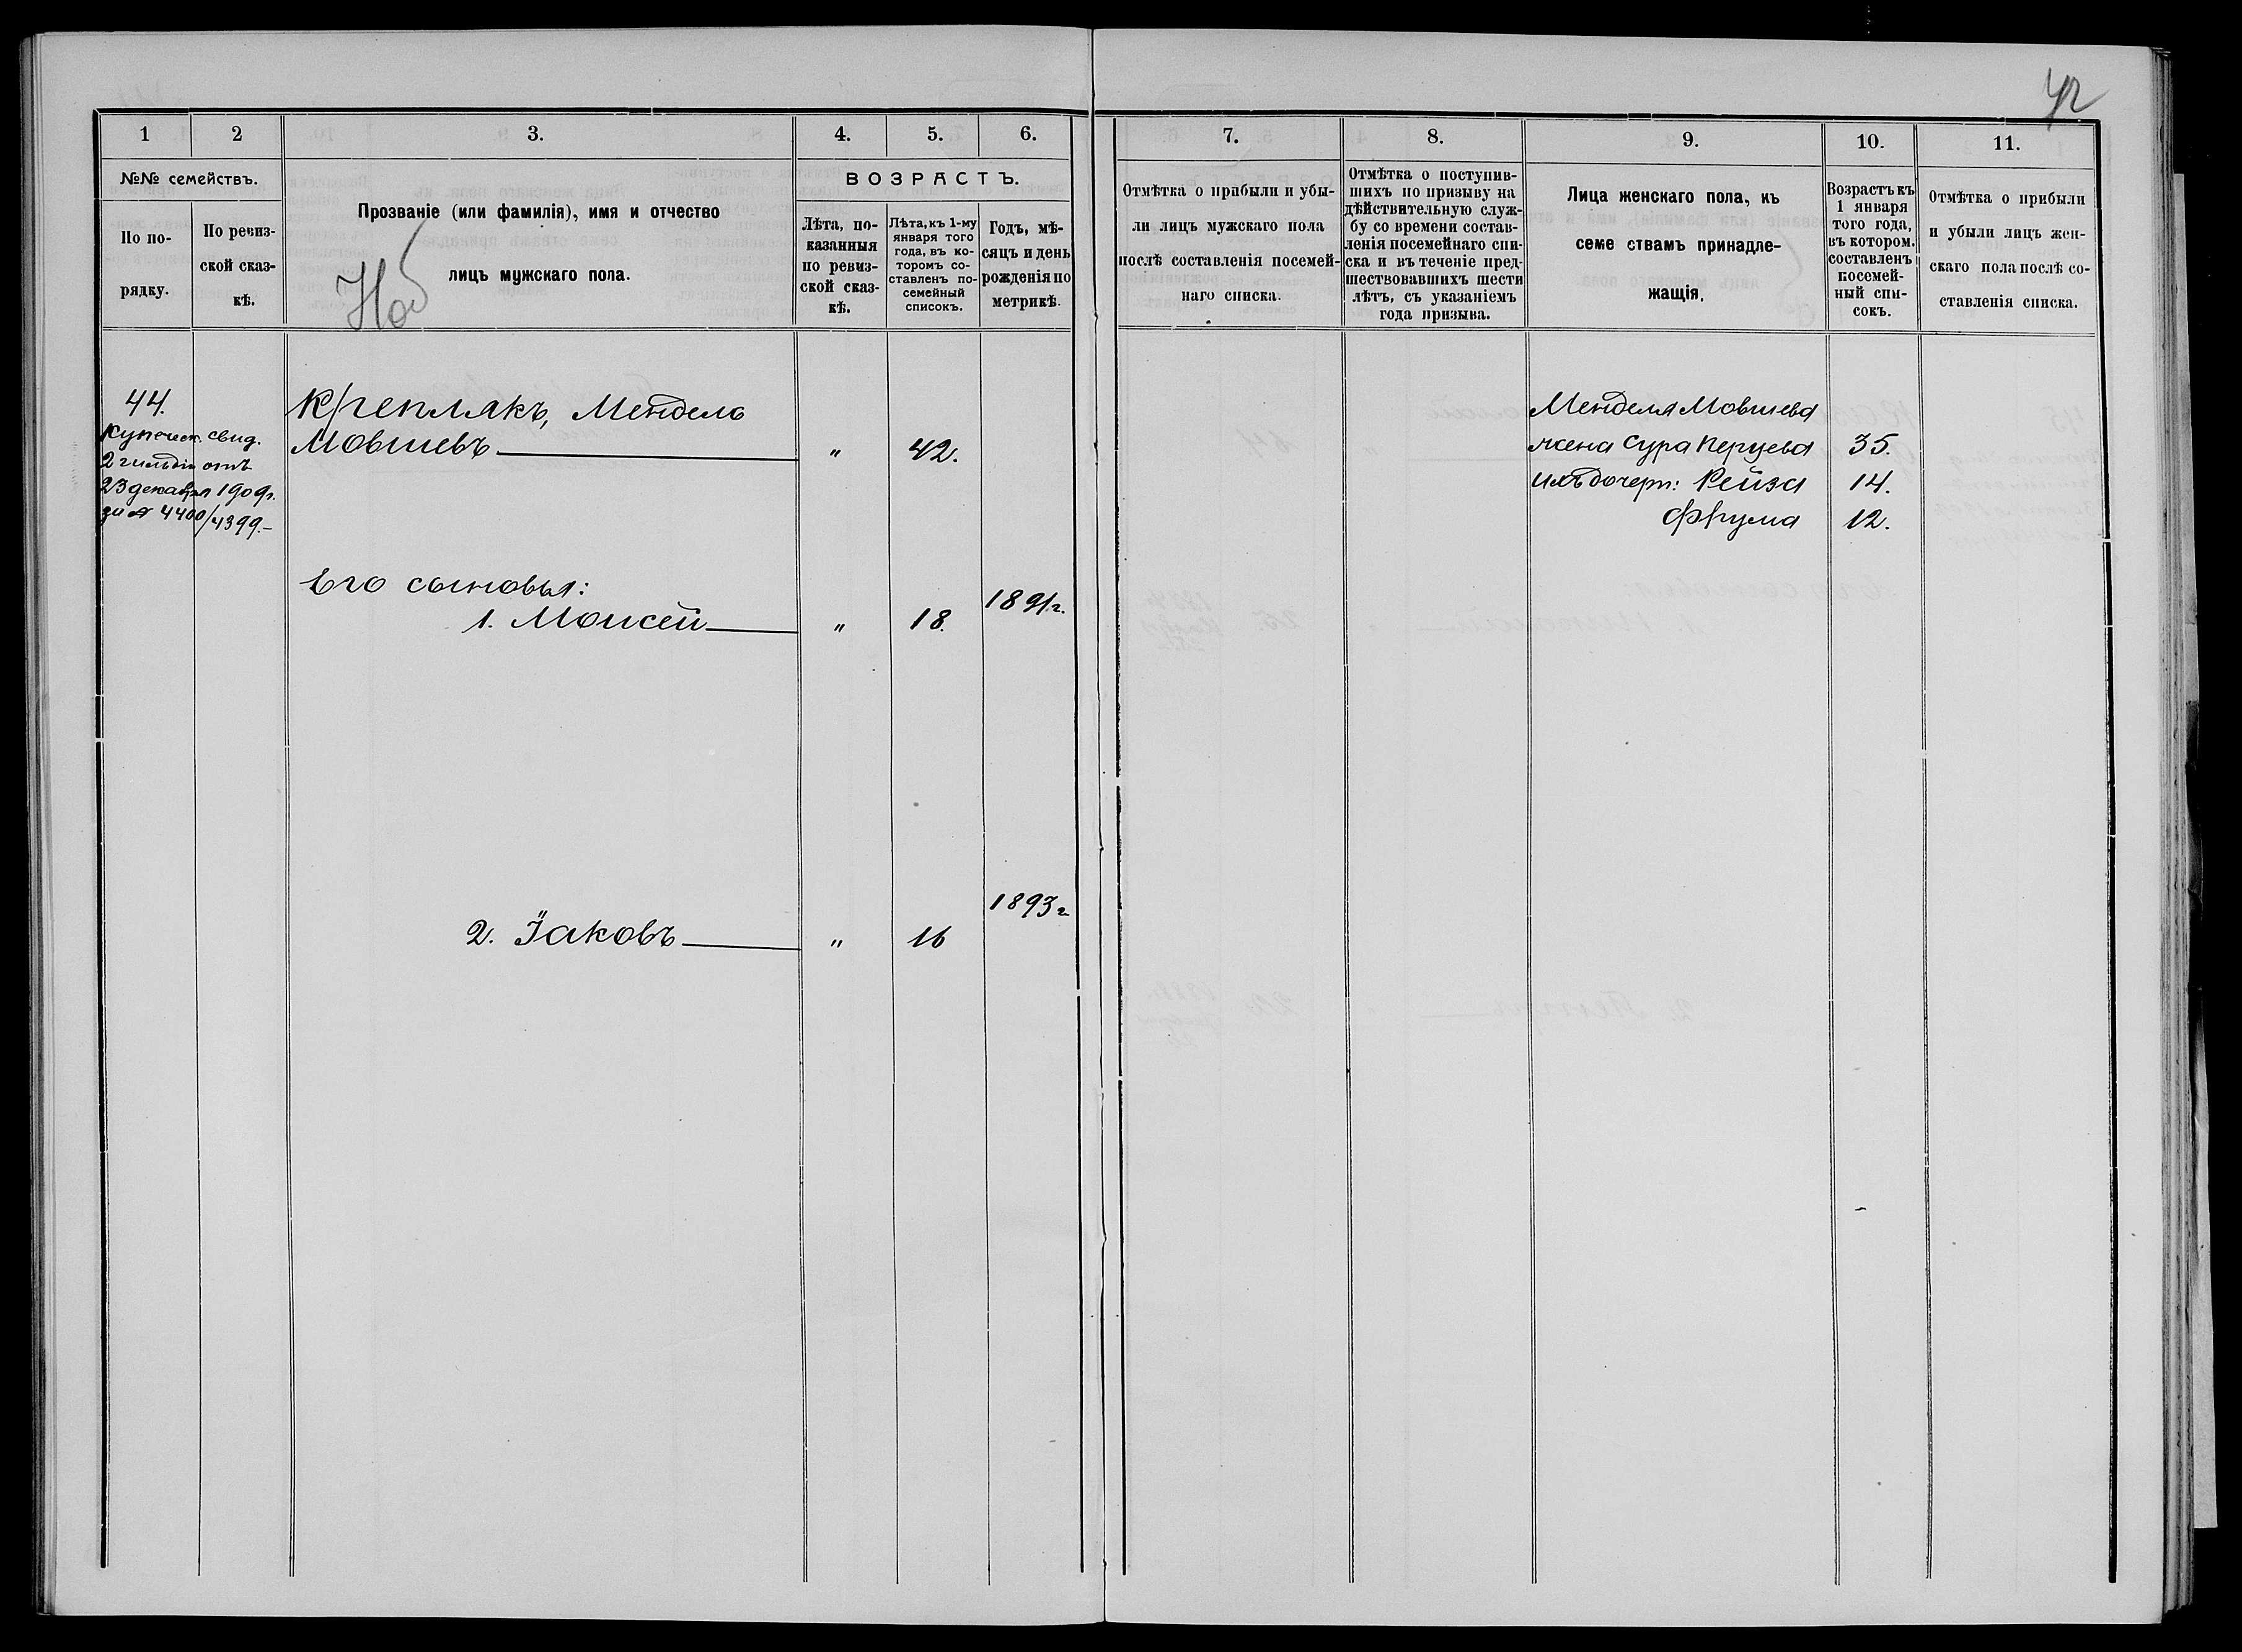 42
1
2
3.
4.
5.
6.
№№ семействъ.
По по-
рядку.
По ревиз-
ской сказ-
кѣ.
Прозваніе (или фамилія), имя и отчество
лицъ мужскаго пола.
ВОЗРАСТЪ.
Лѣта, по-
казанныя
по ревиз-
ской сказ-
кѣ.
Лѣта, къ 1-му
января того
года, въ ко-
торомъ со-
ставленъ по-
семейный
списокъ.
Годъ, мѣ-
сяцъ и день
рожденія по
метрикѣ.
44.
Купеческ. свид.
2 гильдіи отъ
23 декабря 1909 г.
за № 4400/4399.-
Креплякъ, Мендель
Мовшевъ
"
42.
Его сыновья:
1. Моисей
"
18.
1891 г.
2. Іаковъ
"
16
1893 г
7.
8.
9.
10.
11.
Отмѣтка о прибыли и убы-
ли лицъ мужскаго пола
послѣ составленія посемей-
наго списка.
Отмѣтка о поступив-
шихъ по призыву на
дѣйствительную служ-
бу со времени состав-
ленія посемейнаго спи-
ска и въ теченіе пред-
шествовавшихъ шести
лѣтъ, съ указаніемъ
года призыва.
Лица женскаго пола, къ
семе ствамъ принадле-
жащія.
Возрастъ къ
1 января
того года,
въ котором.
составленъ
посемей-
ный спи-
сокъ.
Отмѣтка о прибыли
и убыли лицъ жен-
скаго пола послѣ со-
ставленія списка.
Менделя Мовшева
жена Сура Перцева 35.
ихъ дочери: Рейза 14.
Фрума 12.